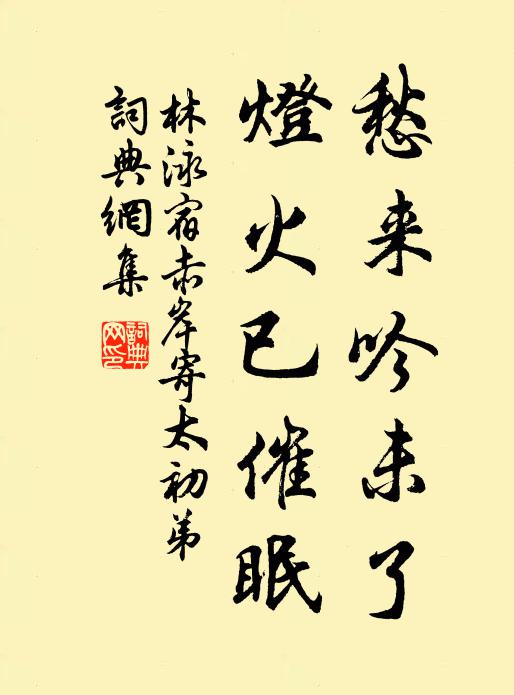 愁来吟未了
燈火已催眠
林泳宿赤岸寄太初弟
詞典網集
詞典網印